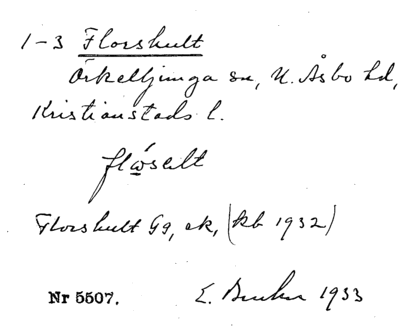 1-3 Florshult
Örkelljunga sn, N. Åsbo hd,
Kristianstads l.
Florshult Gg, ek, (kb 1932)
Nr 5507. E. 1933